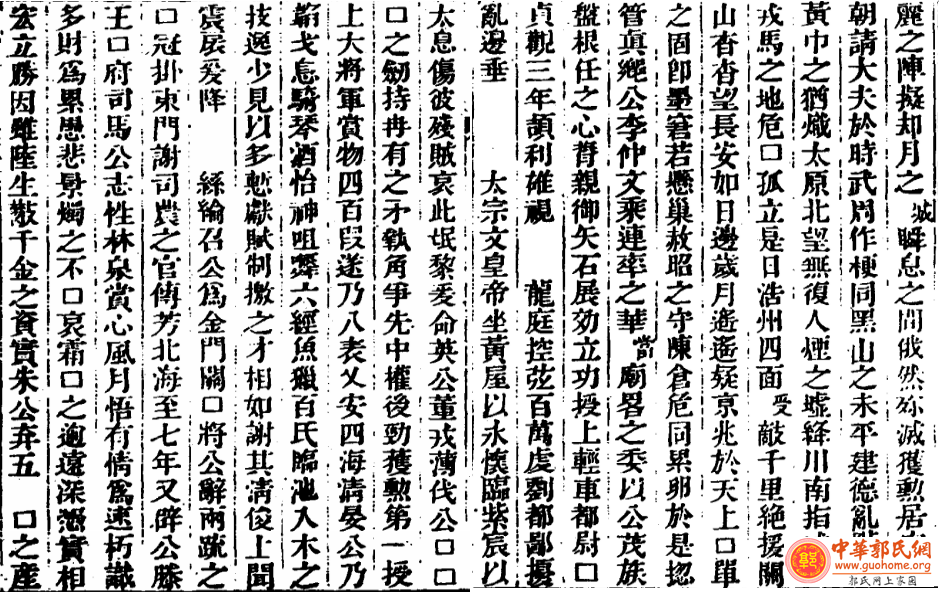 麗之陣擬却月之城瞬息之間俄然殄滅獲勳居
朝請大夫於時武周作梗同黑山之未平建德亂
黃巾之猶熾太原北望無復人煙之墟絳川南指
戎馬之地危口孤立是日浩州四面受敵千里絶援關
山杳杳望長安如日邊歲月遙遙疑京兆於天上口單
之固卽墨窘若懸巢赦昭之守陳倉危同累卵於是揔
管眞鄉公李仲文乘連率之華當廟畧之委以公茂族
盤根任之心膂親御矢石展効立功授上輕車都尉口
貞觀三年頡利確視 龍庭控弦百萬虔劉都鄙擾
亂邊垂 太宗文皇帝坐黃屋以永懷臨紫宸以
太息傷彼殘賊哀此氓黎爰命英公董戎薄伐公口口
口之劒持冉有之矛執角爭先中權後勁獲勳第一授
上大將軍賞物四百段遂乃八表乂安四海淸晏公乃
韜戈息騎琴酒怡神咀嚼六經魚獵百氏臨池入木之
技逸少見以多慙獻賦制撽之才相如謝其淸俊上聞
震展爰降 絲綸召公爲金門關口將公辭兩疏之
口冠掛東門謝司農之官傳芳北海至七年又辟公滕
王口府司馬公志性林泉賞心風月悟有情爲速朽識
多財爲累愚悲景燭之不口哀霜口之逾遠深憑實相
宏立勝因雖陸生散千金之資實朱公弃五 口之産
中華郭氏網
www.guohome.org
郭氏网上家園